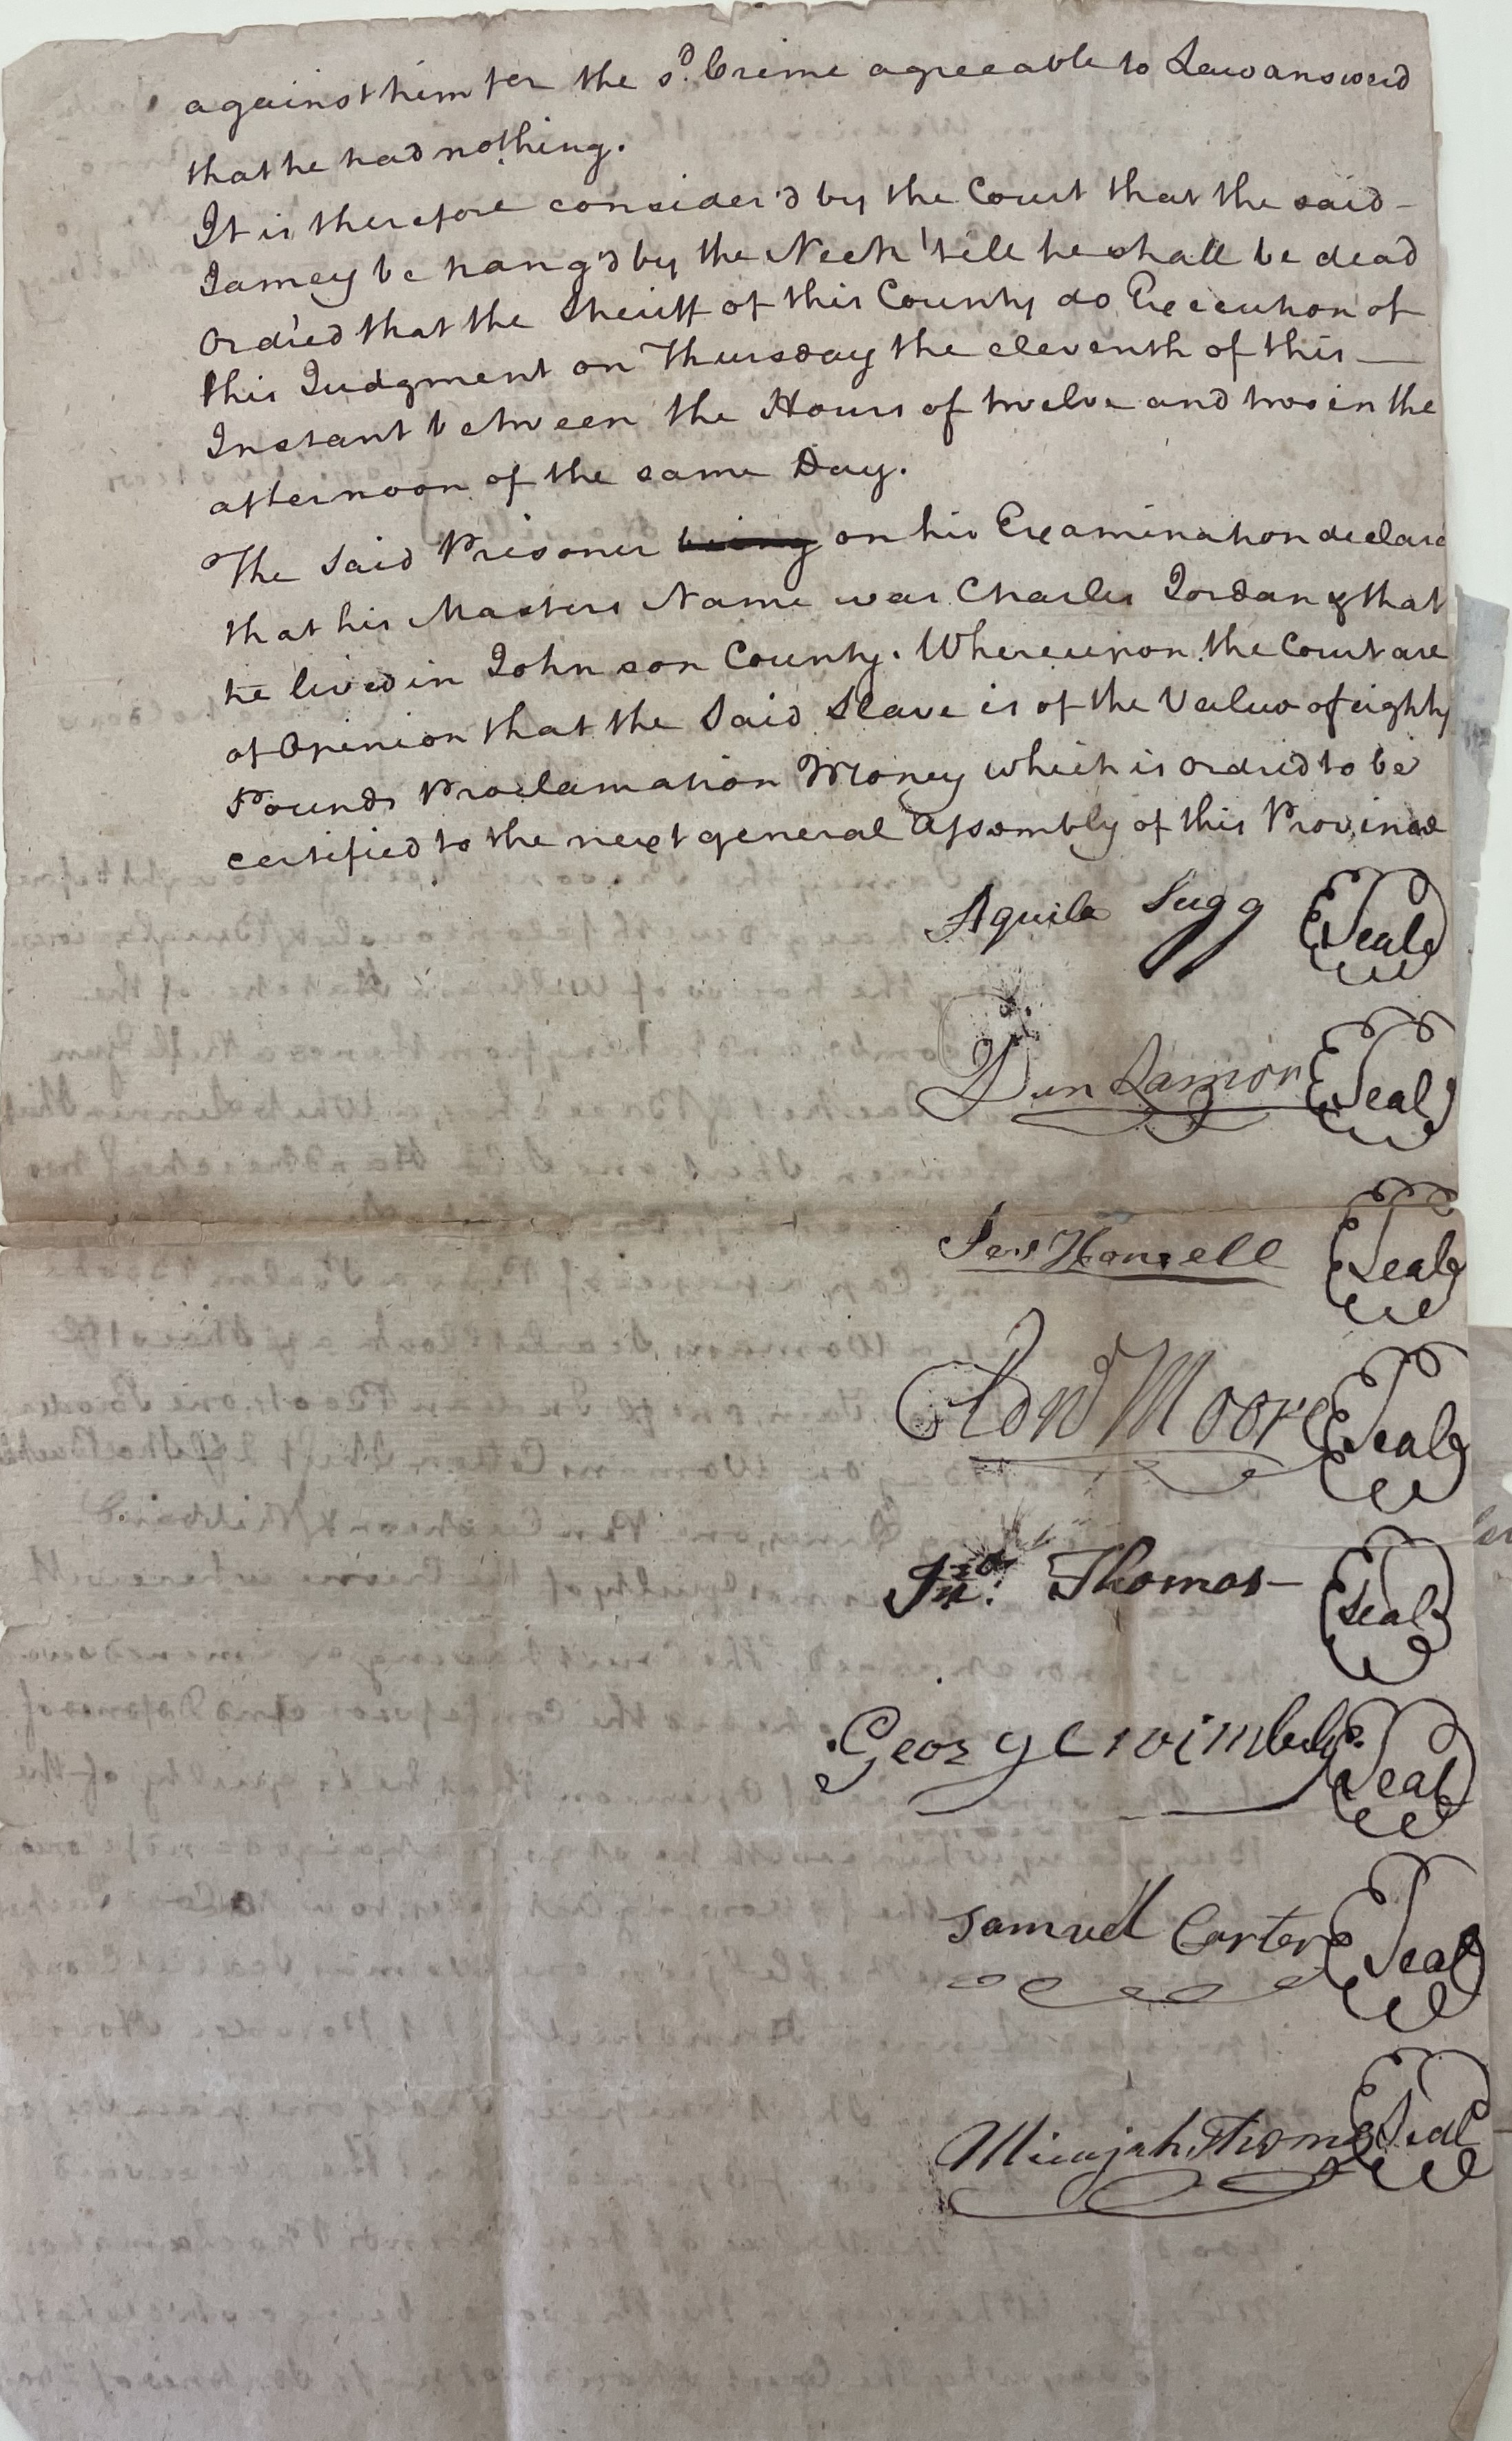 against him for the sd. Crime agreeable to Law answerd
that he had nothing.
It is therefore consider'd by the Court that the said -
Jamey be hang'd by the Neck 'till he shall be dead
Ordred that the Sheriff of this County do Execution of
this Judgment on Thursday the eleventh of this —
Instant between the Hours of twelve and two in the
afternoon of the same Day.
The Said Prisoner being on his Examination declard
that his Masters Name was Charles Jordan & that
he lived in Johnson County. Whereupon the Court are
of Opinion that the Said Slave is of the Value of eighty
Pounds Proclamation Money which is ordred to be
certified to the next general Assembly of this Province
Aquila Sugg Seal
Dun Lamon Seal
Seal
Edwd Moore Seal
Jno. Thomas Seal
George Wimberly Seal
Samuel Carter Seal
Micajah Thomas Seal